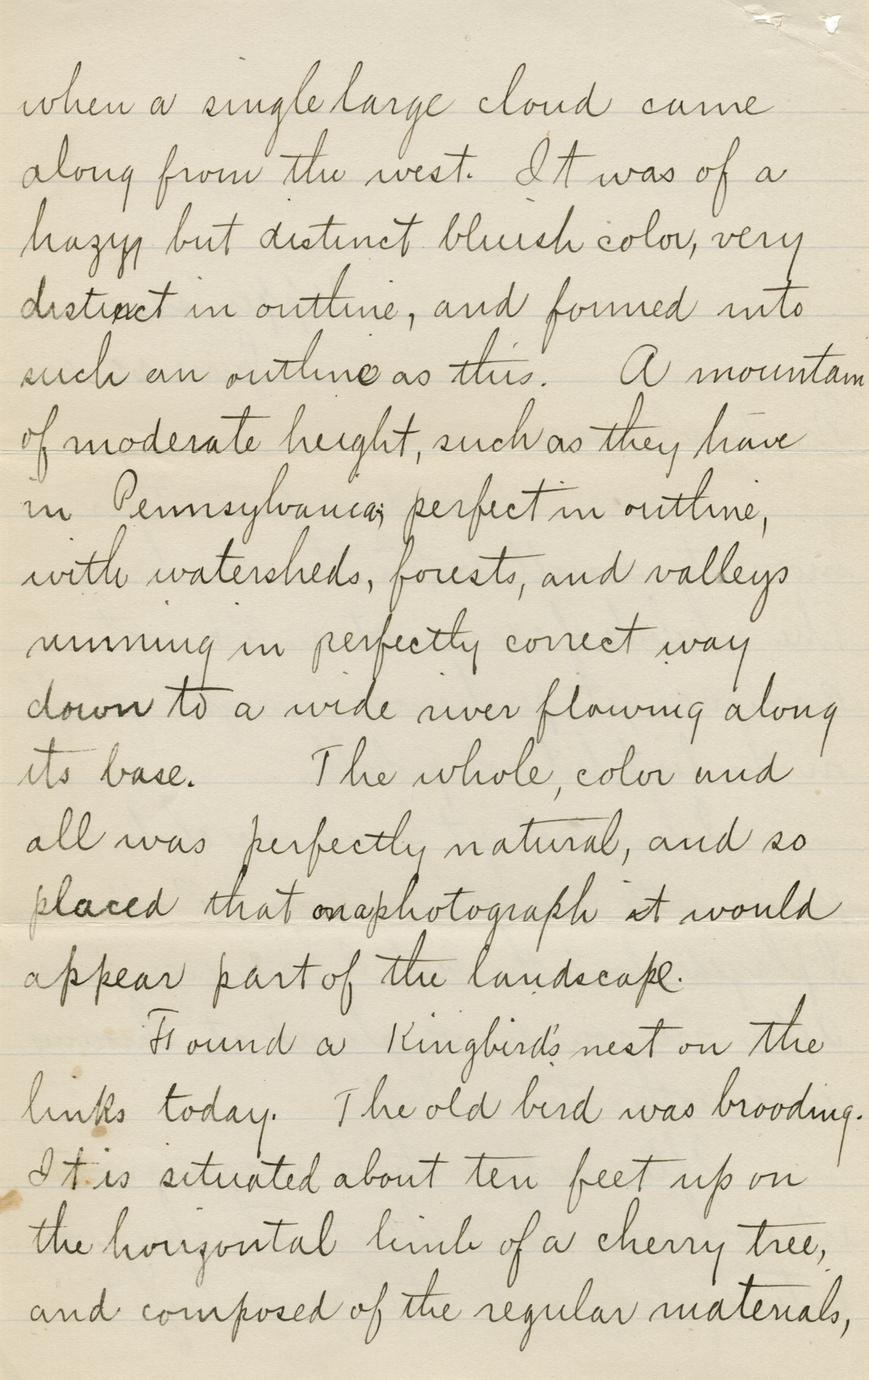 when a single large cloud came
along from the west. It was of a
hazy, but distinct bluish color, very
distinct in outline, and formed into
such an outline as this. A mountain
of moderate height, such as they have
in Pennsylvania, perfect in outline,
with watersheds, forests, and valleys
running in perfectly correct way
down to a wide river flowing along
its base. The whole, color and
all was perfectly natural, and so
placed that on a photograph it would
appear part of the landscape.
Found a Kingbird's nest on the
links today. The old bird was brooding.
It is situated about ten feet up on
the horizontal limb of a cherry tree,
and composed of the regular materials,